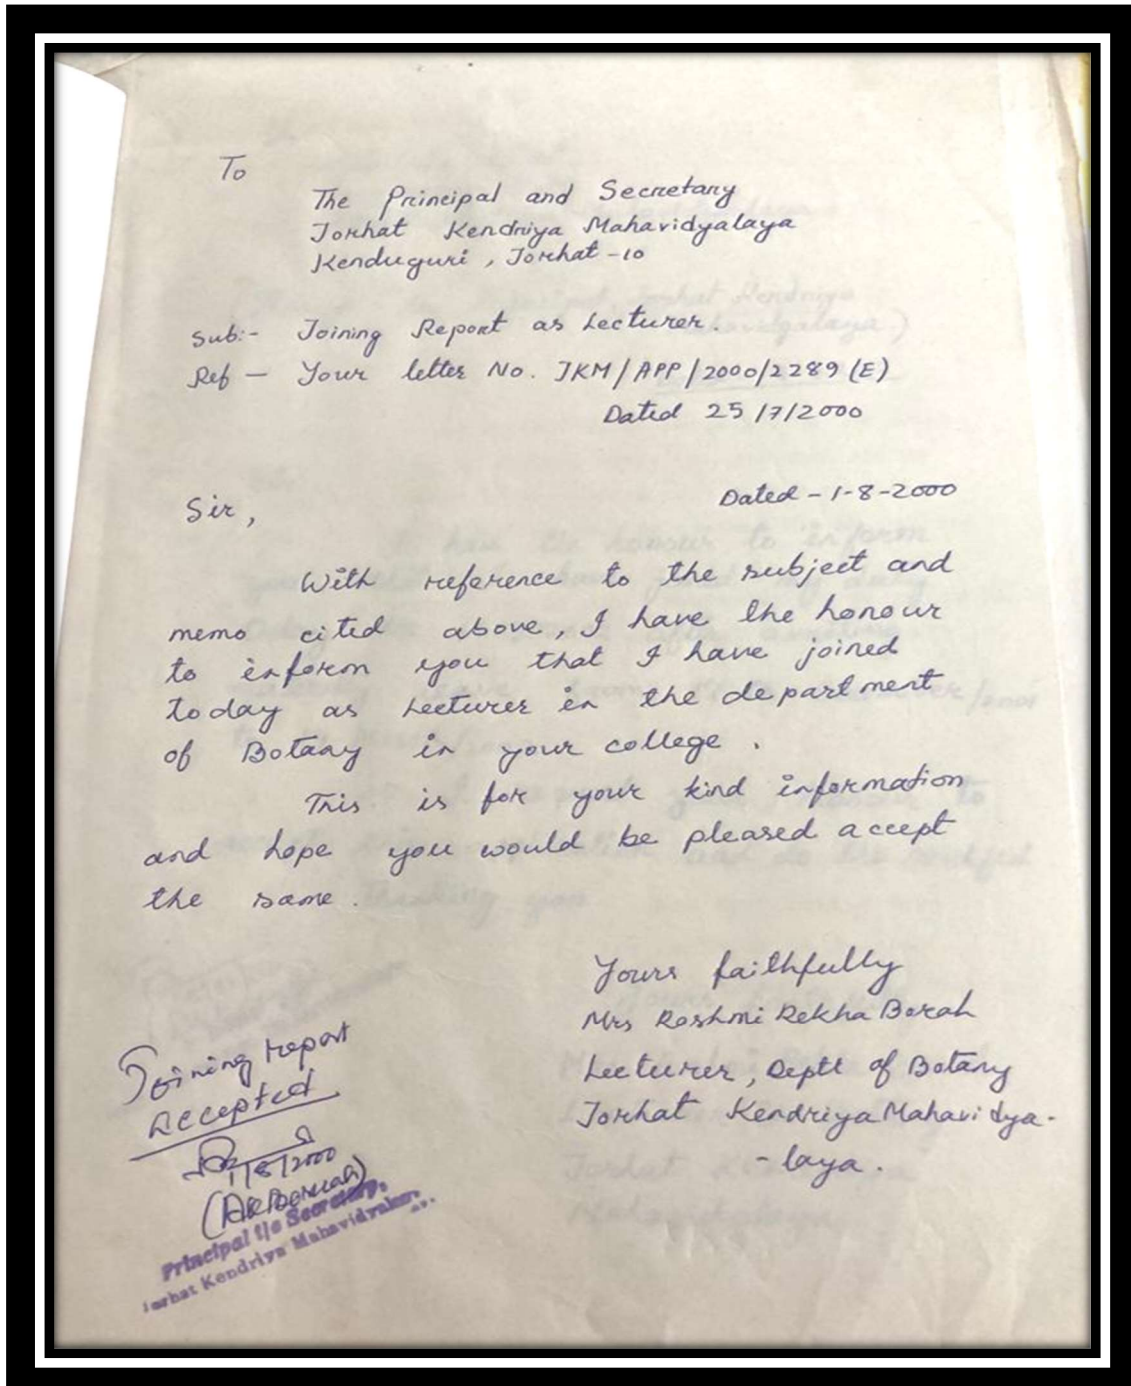 To
The Principal and Secretary
Jorhat Kendriya Mahavidyalaya
Kenduguri, Jorhat-10
Sub:- Joining Report as Lecturer.
Ref - Your letter No. JKM/APP/2000/2289 (E)
Dated 25/7/2000
Dated - 1-8-2000
Sir,
With reference to the subject and
memo cited above, I have the honour
to inform you that I have joined
today as Lecturer in the department
of Botany in your college.
This is for your kind information
and hope you would be pleased accept
the same.
Yours faithfully
Mrs Rashmi Rekha Borah
Lecturer, Deptt of Botany
Jorhat Kendriya Mahavidya-
-laya.
Joining report
Accepted
1/8/2000
Principal t/c Secretary,
Jorhat Kendriya Mahavidyalaya